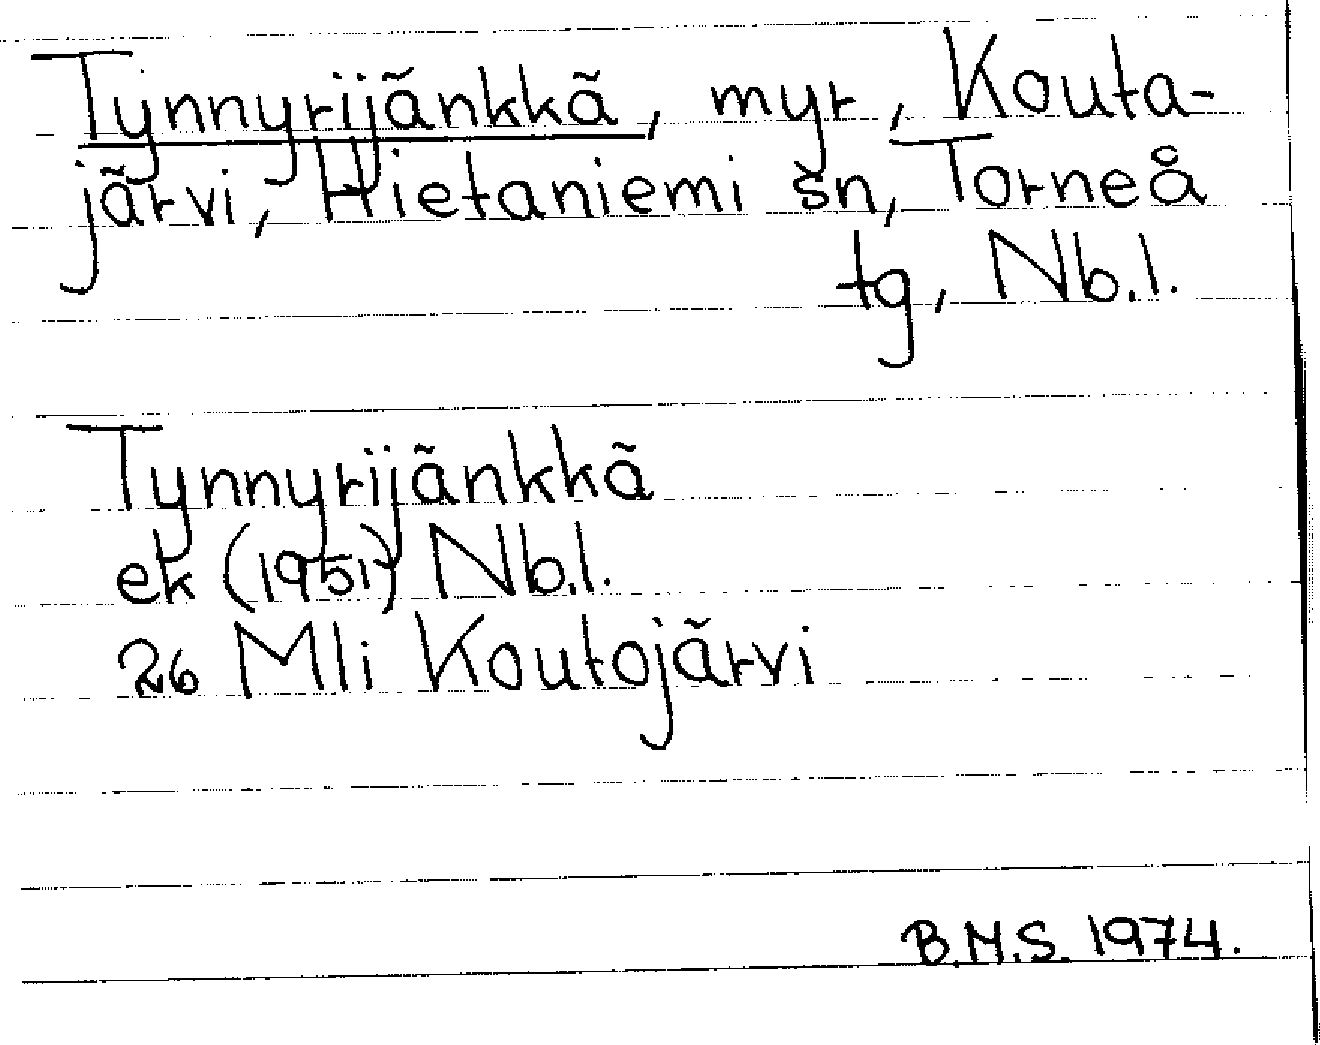 Tynnyrijänkkä, myr, Kouta-
järvi, Hietaniemi sn, Torneå
tg, Nb.l.
Tynnyrijänkkä
ek (1951) Nb.l.
26 Mli Koutojärvi
B.M.S. 1974.